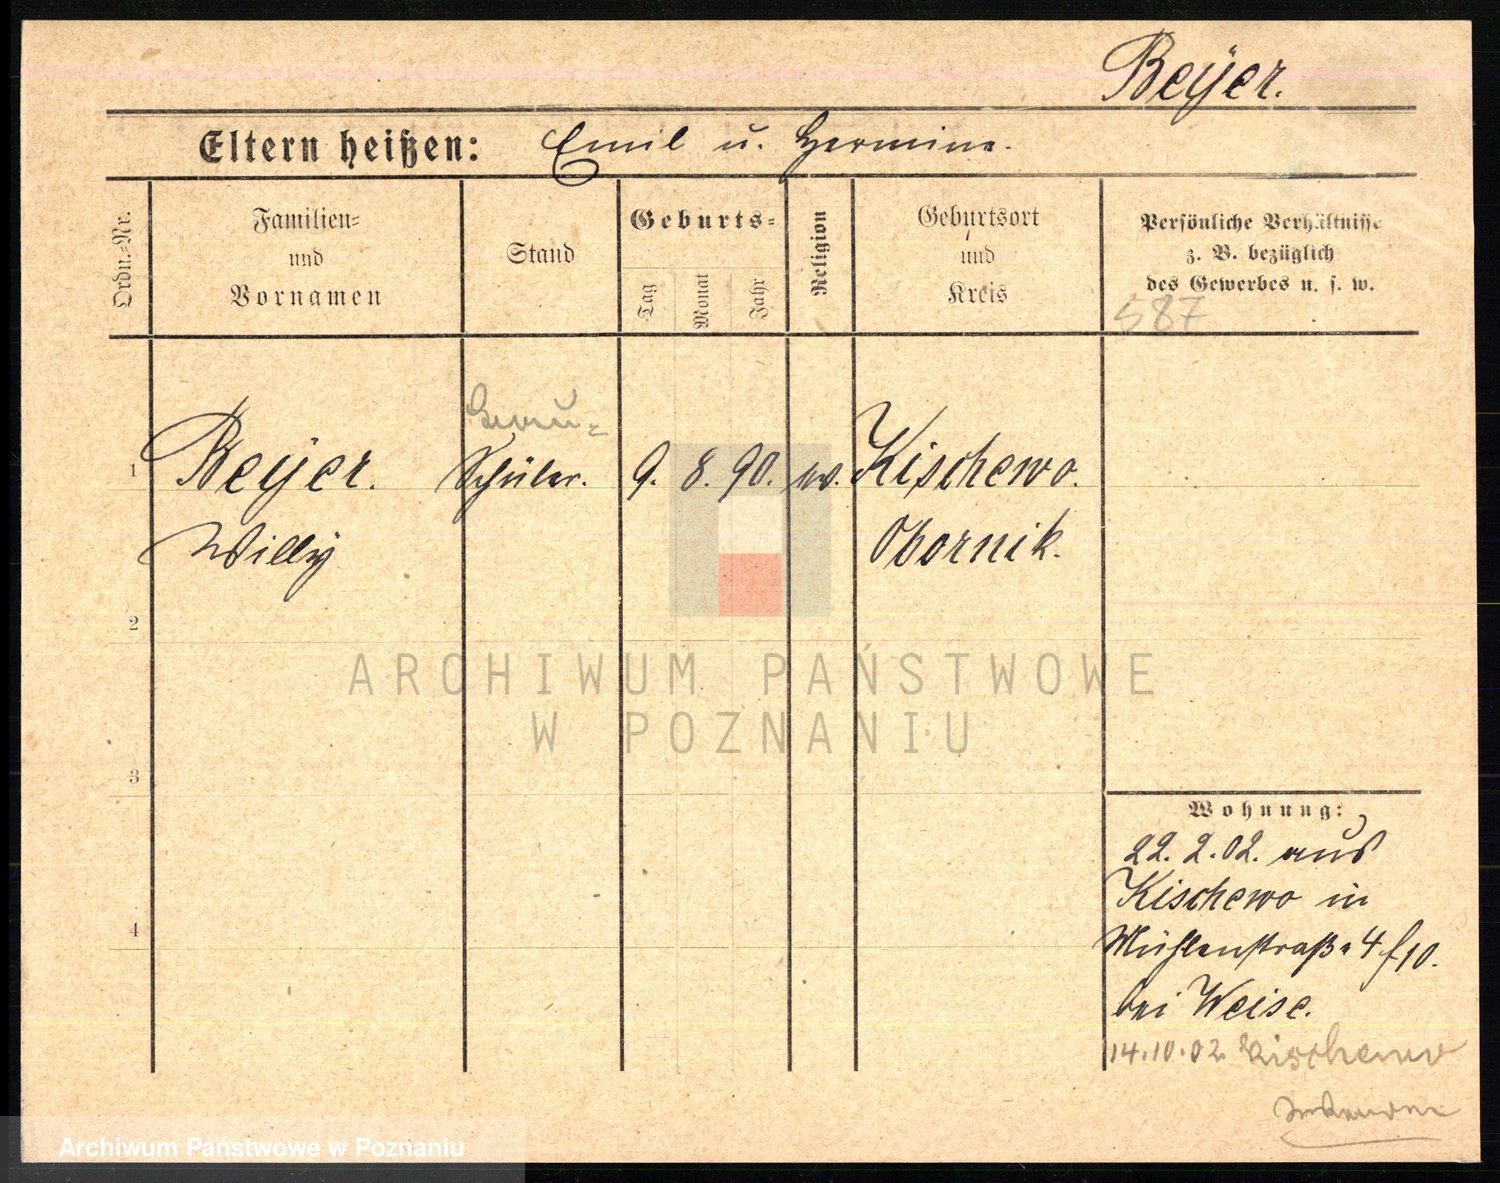 Beÿer.
Eltern heißen: Emil u. Hermine.
Ordn.-Nr.
Familien-
und
Vornamen
Stand
Geburts-
Tag
Monat
Jahr
Religion
Geburtsort
und
Kreis
Persönliche Verhältnisse
z. B. bezüglich
des Gewerbes u. s. w.
587
1 Beÿer. Schüler. 9. 8. 90. ev. Kischewo.
Willÿ Obornik.
2
ARCHIWUM PAŃSTWOWE
W POZNANIU
3
Wohnung:
22. 2. 02. aus
Kischewo in
4
Mühlenstraße 4 f 10.
bei Weise.
14.10.02 Kischewo
Archiwum Państwowe w Poznaniu